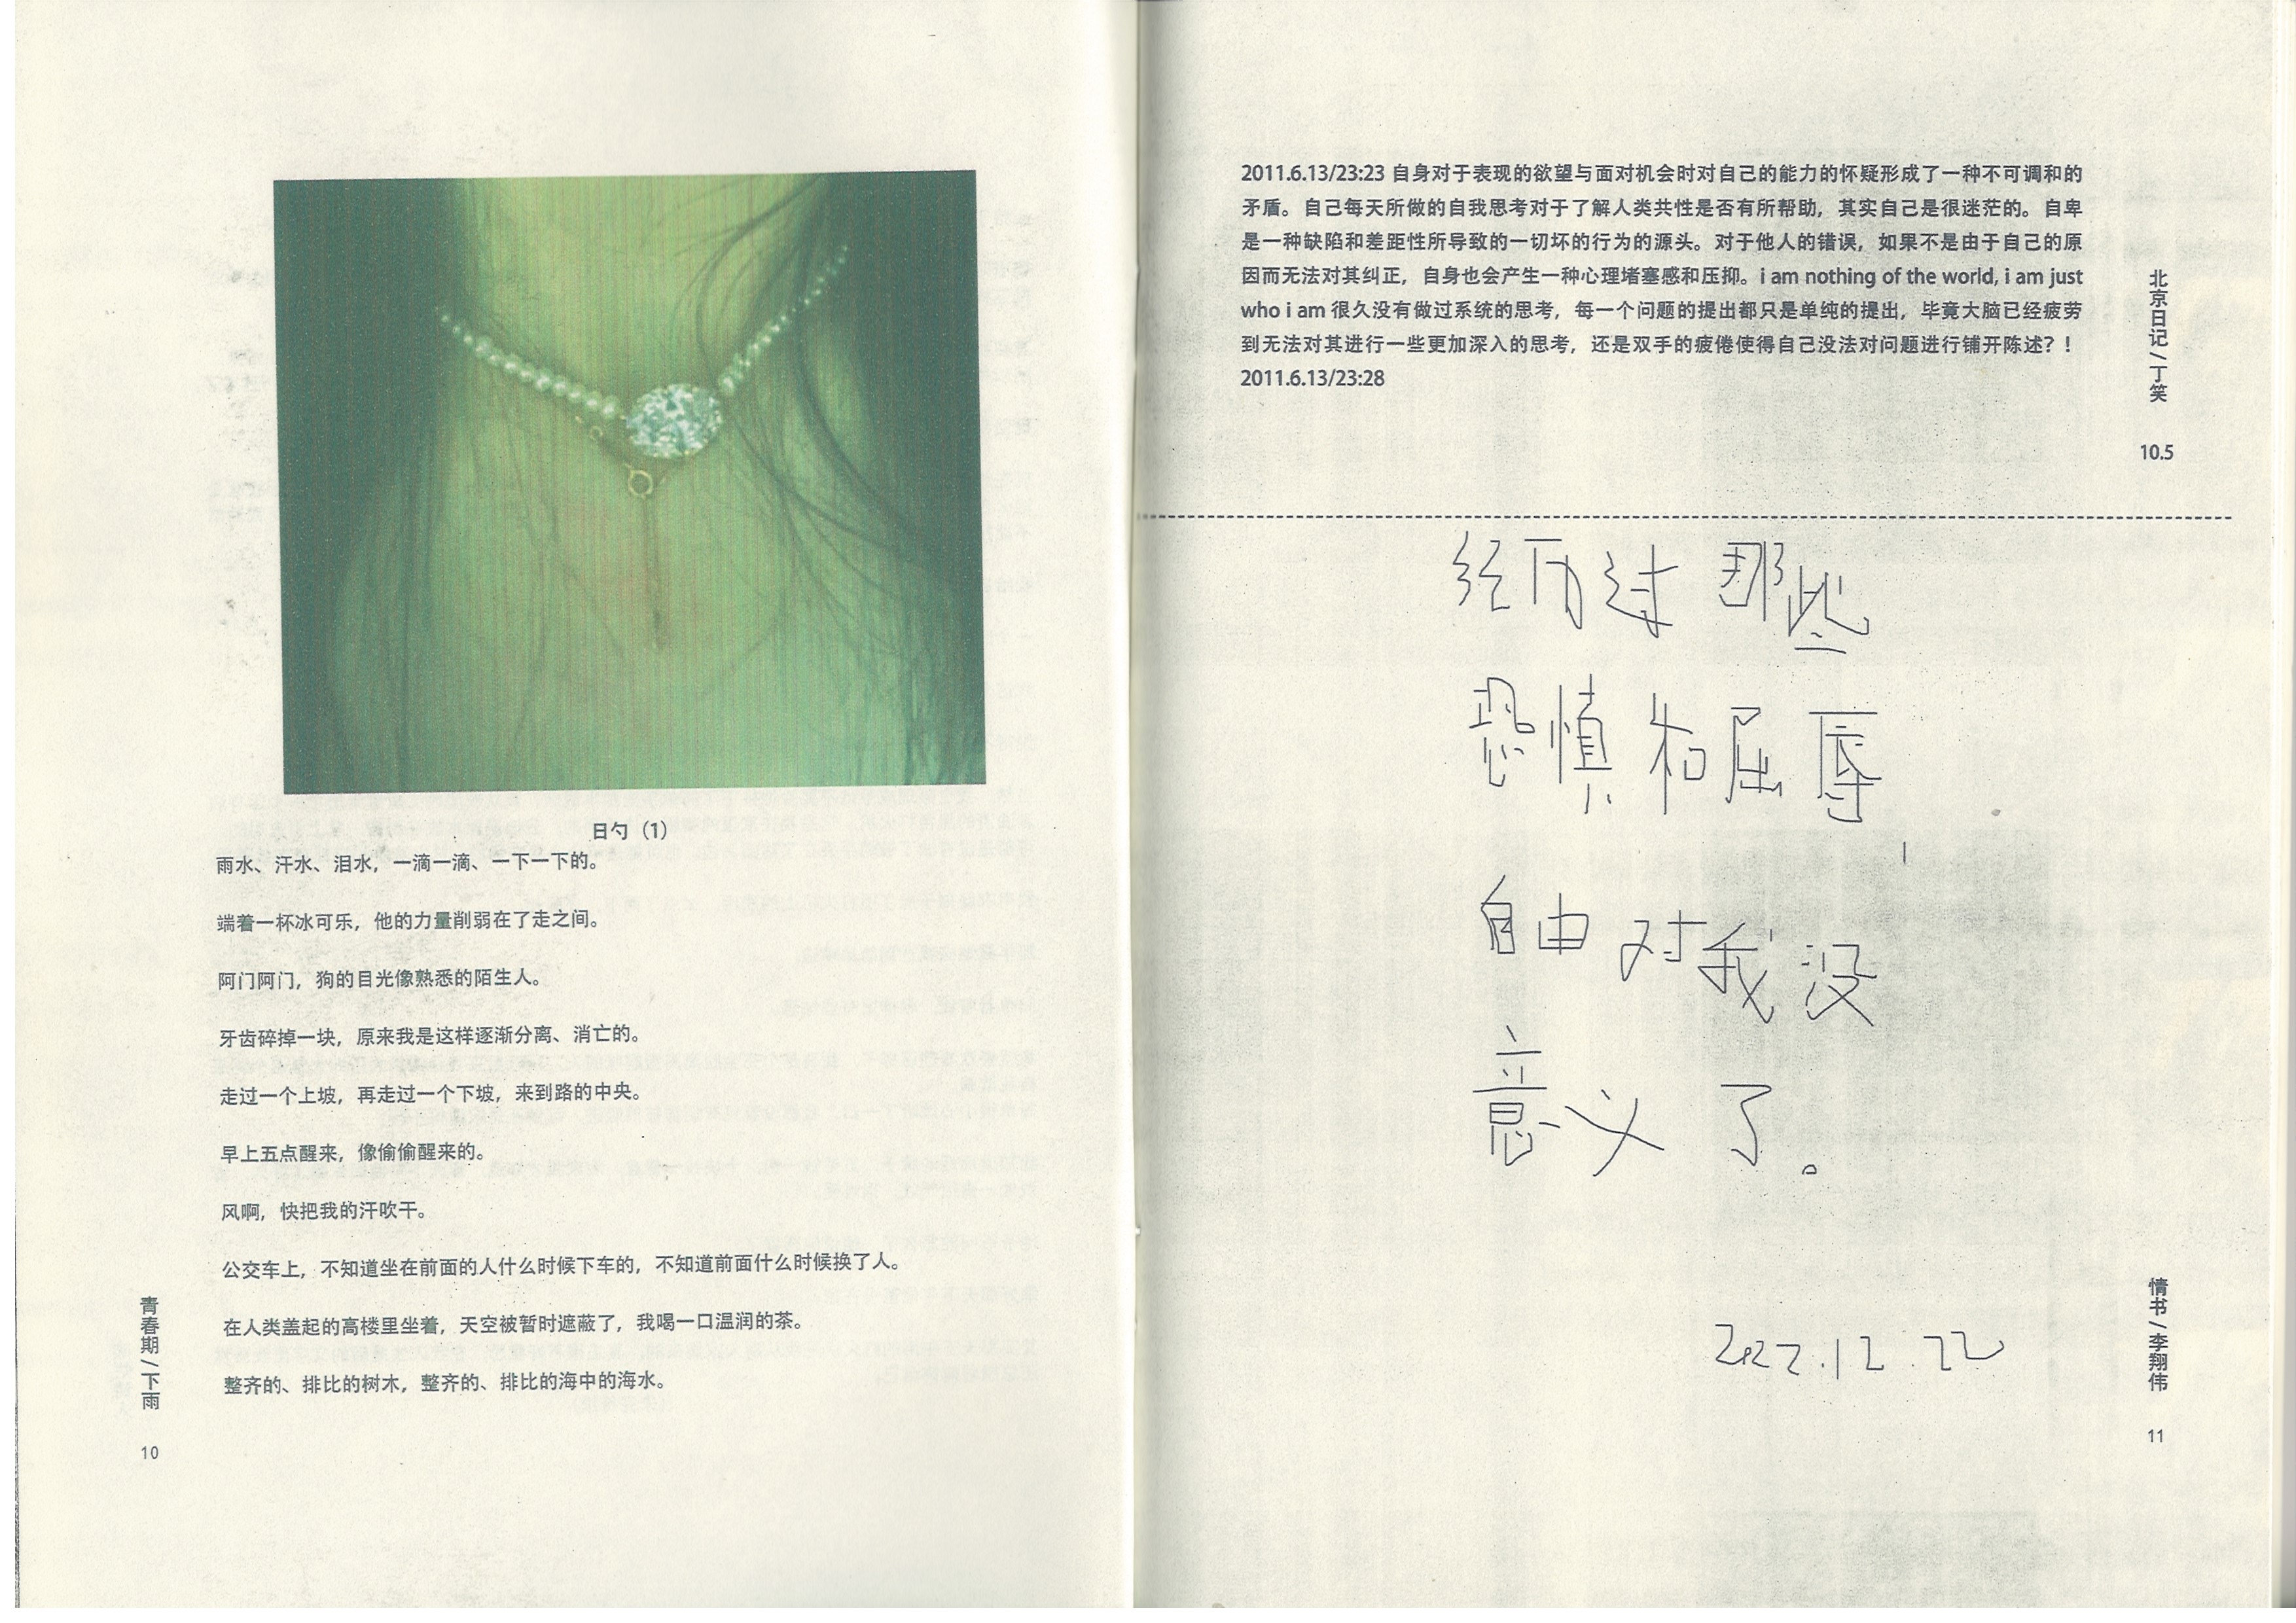 日勺（1）
雨水、汗水、泪水，一滴一滴、一下一下的。
端着一杯冰可乐，他的力量削弱在了走之间。
阿门阿门，狗的目光像熟悉的陌生人。
牙齿碎掉一块，原来我是这样逐渐分离、消亡的。
走过一个上坡，再走过一个下坡，来到路的中央。
早上五点醒来，像偷偷醒来的。
风啊，快把我的汗吹干。
公交车上，不知道坐在前面的人什么时候下车的，不知道前面什么时候换了人。
在人类盖起的高楼里坐着，天空被暂时遮蔽了，我喝一口温润的茶。
整齐的、排比的树木，整齐的、排比的海中的海水。
青春期/下雨
10
2011.6.13/23:23 自身对于表现的欲望与面对机会时对自己的能力的怀疑形成了一种不可调和的
矛盾。自己每天所做的自我思考对于了解人类共性是否有所帮助，其实自己是很迷茫的。自卑
是一种缺陷和差距性所导致的一切坏的行为的源头。对于他人的错误，如果不是由于自己的原
因而无法对其纠正，自身也会产生一种心理堵塞感和压抑。i am nothing of the world, i am just
who i am 很久没有做过系统的思考，每一个问题的提出都只是单纯的提出，毕竟大脑已经疲劳
到无法对其进行一些更加深入的思考，还是双手的疲倦使得自己没法对问题进行铺开陈述？！
2011.6.13/23:28
北京日记/丁笑
10.5
经历过那些
恐慎和屈辱，
自由对我没
意义了。
2022.12.22
情书/李翔伟
11